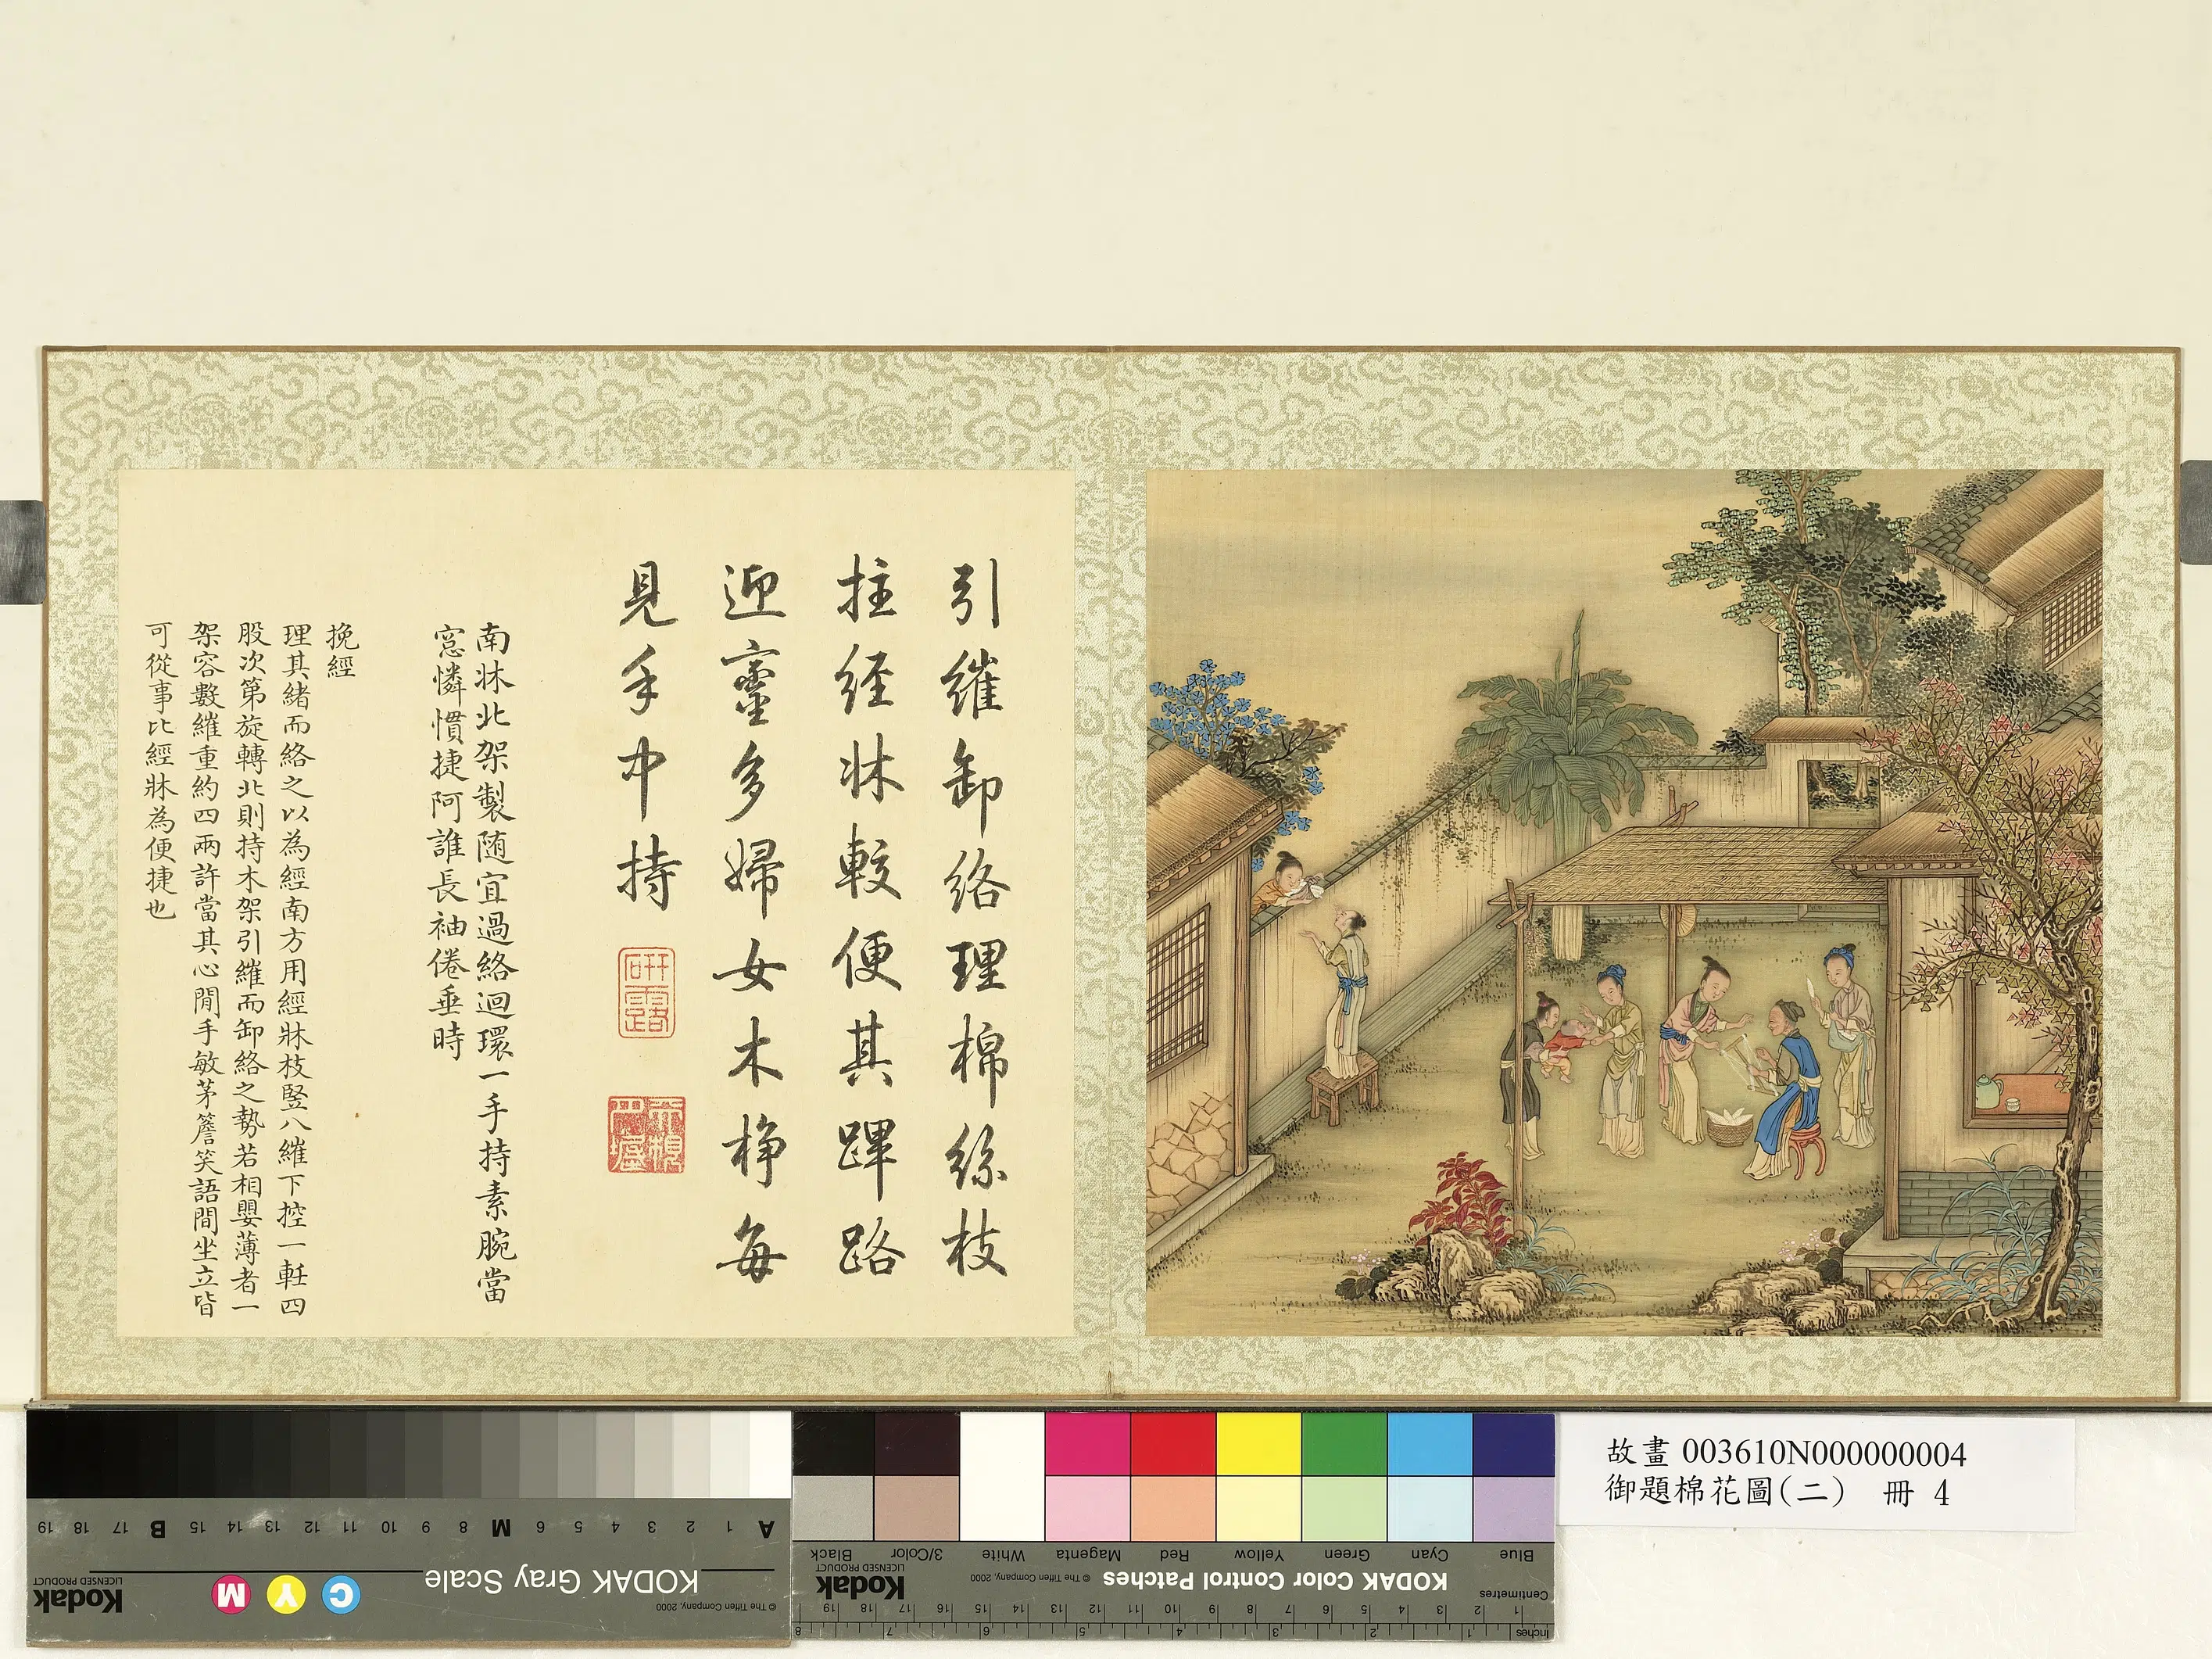 引維卸絡理棉絲枝
拄經牀較便其蹕路
迎鑾多婦女木棦每
見手中持
研露
南牀北架製隨宜過絡迴環一手持素腕當
窓憐慣捷阿誰長袖倦垂時
挽經
理其緒而絡之以為經南方用經牀枝竪八維下控一軠四
股次第旋轉北則持木架引維而卸絡之勢若相嬰薄者一
架容數維重約四兩許當其心閒手敏茅簷笑語間坐立皆
可從事比經牀為便捷也
故畫 003610N000000004
御題棉花圖(二) 冊 4
A 1 2 3 4 5 6 M 8 9 10 11 12 13 14 15 B 17 18 19
KODAK Gray Scale
© The Tiffen Company, 2000
C Y M
Kodak
LICENSED PRODUCT
Blue Cyan Green Yellow Red Magenta White 3/Color Black
KODAK Color Control Patches
© The Tiffen Company, 2000
Kodak
LICENSED PRODUCT
Centimetres
1 2 3 4 5 6 7 8 9 10 11 12 13 14 15 16 17 18 19
Inches
1 2 3 4 5 6 7 8